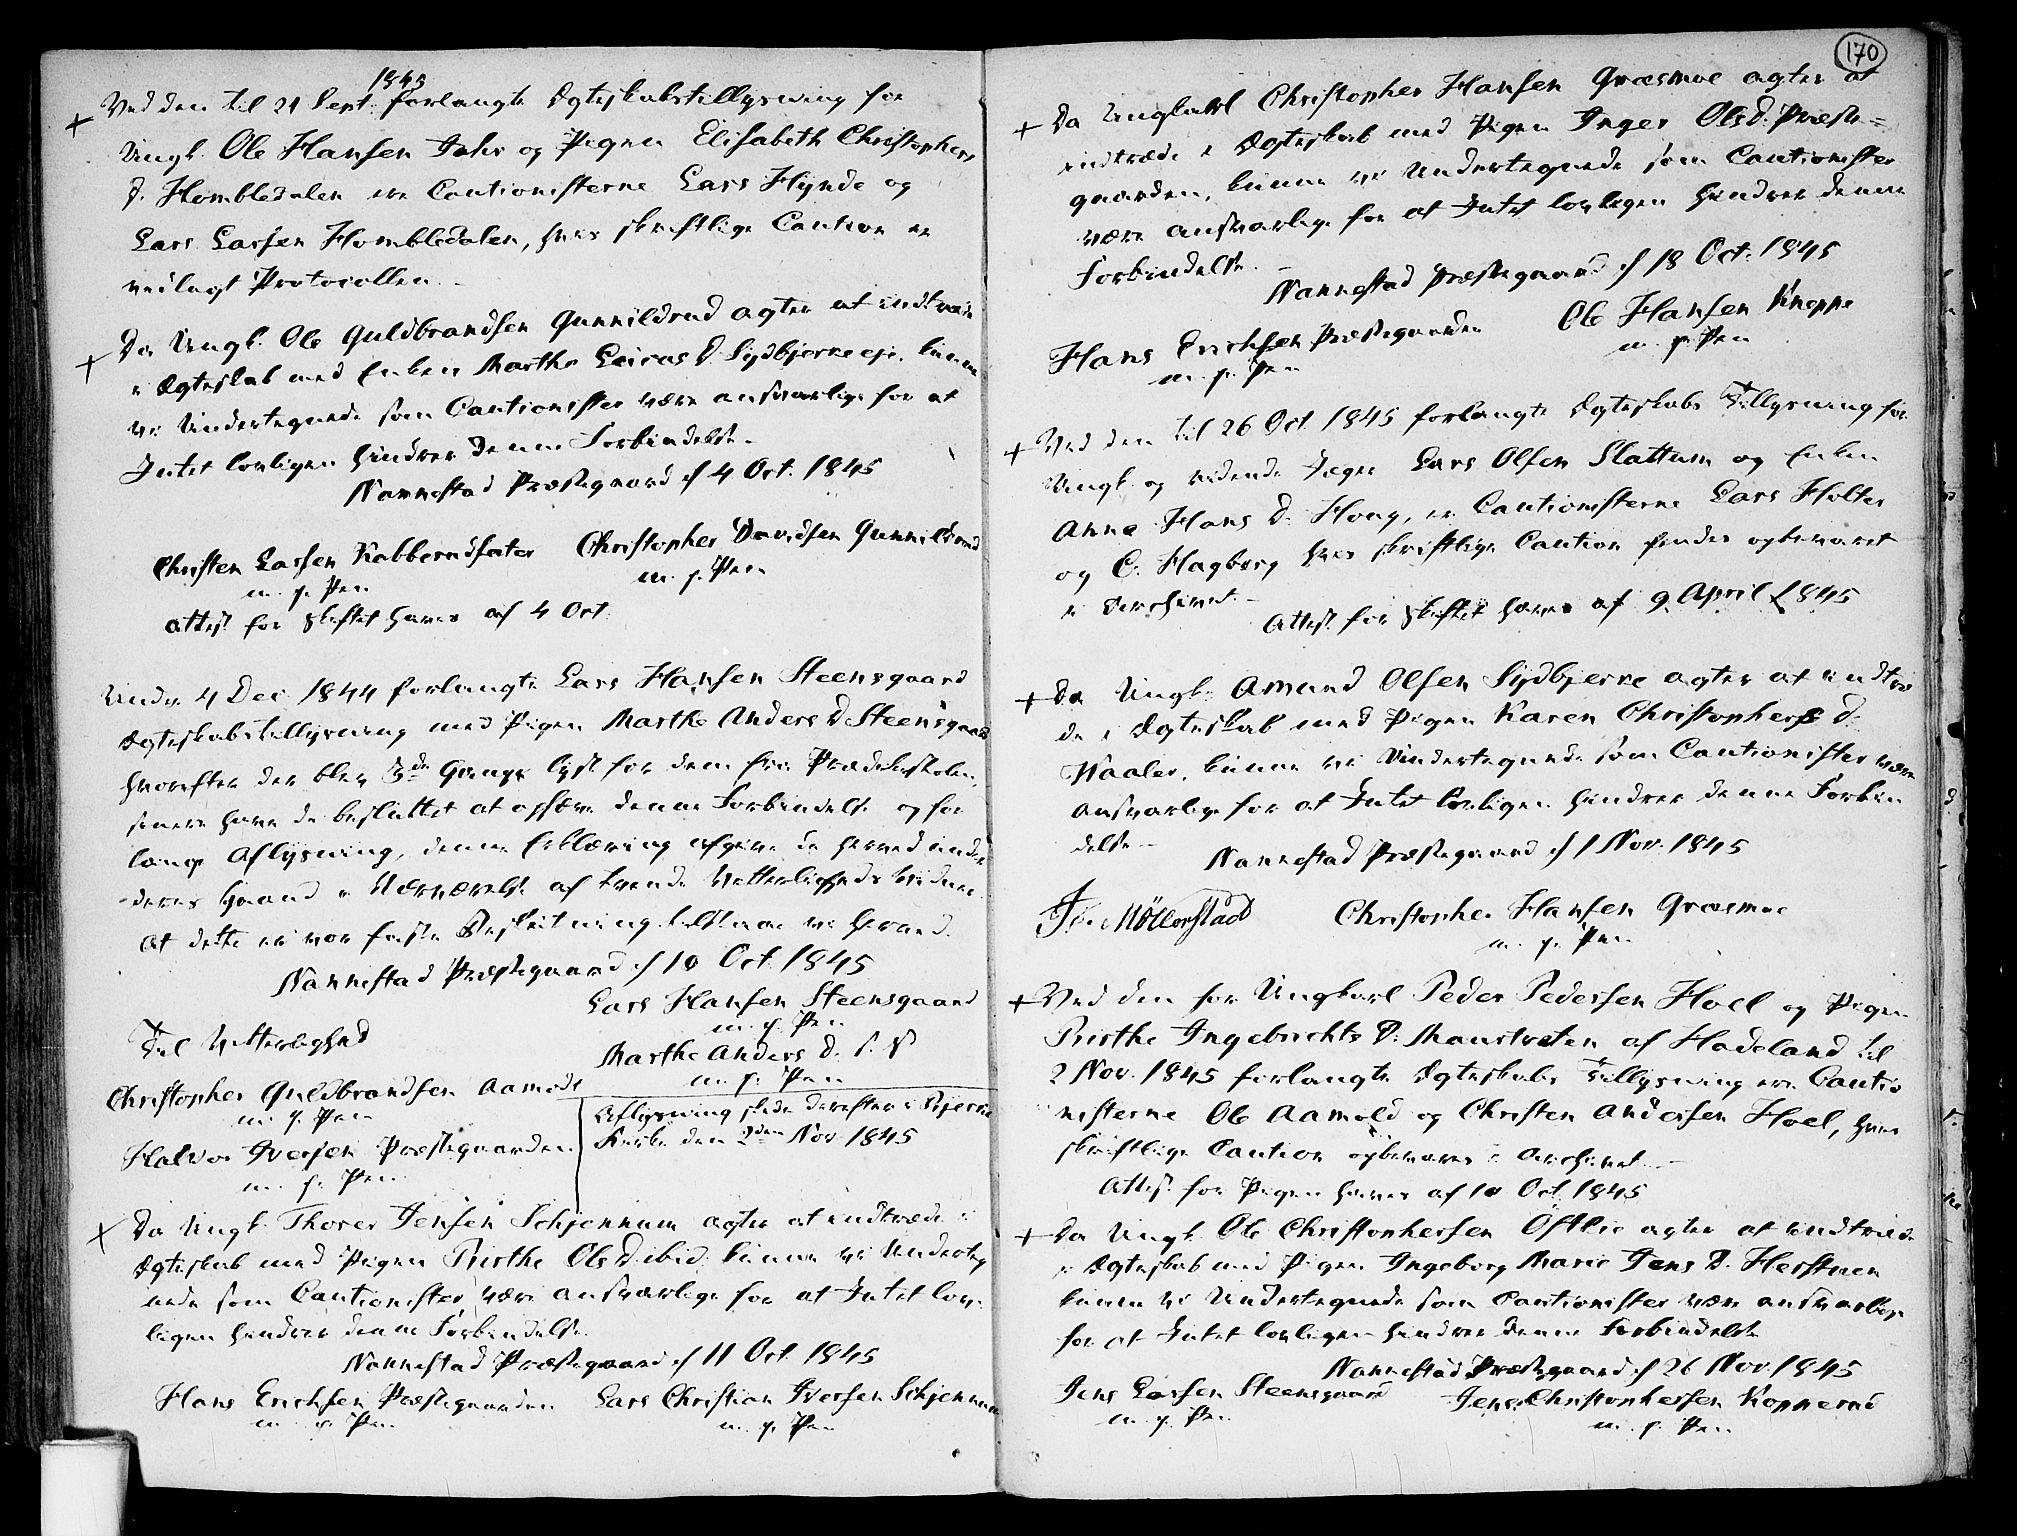 1845
+ Ved den til 21 Sept. forlangte Ægteskabstillysning for
Ungk. Ole Hansen Jahr og Pigen Elisabeth Christophers
D. Hombledalen ere Cautionisterne Lars Flynde og
Lars Larsen Hombledalen, hvis skriftlige Caution er
vedlagt Protocollen.
+ Da Ungk. Ole Guldbrandsen Gunnildrud agter at indtræde
i Ægteskab med Enken Marthe Leicas D. Sydbjerkeeje, kunne
vi Undertegnede som Cautionister være ansvarlige for at
Intet lovligen hindrer denne Forbindelse.
Nannestad Præstegaard d 4 Oct. 1845
Christen Larsen Kabberudsæter Christopher Davidsen Gunnildrud
m. p. Pen m. p. Pen
Attest for Skiftet haves af 4 Oct.
Under 4 Dec 1844 forlangte Lars Hansen Steensgaard
Ægteskabstillysning med Pigen Marthe Anders D Steensgaard
hvorefter der blev 3de Gange lyst for dem fra Prædikestolen,
senere have de besluttet at ophæve denne Forbindelse og for
lange Aflysning, denne Erklæring afgive de herved under
deres Haand i Nærværelse af tvende Vitterligheds Vidner.
At dette er vor faste Beslutning tilstaae vi herved.
Nannestad Præstegaard d 10 Oct. 1845
Lars Hansen Steensgaard
m. p. Pen
Til Vitterlighed
Marthe Anders D. S.
m. p. Pen
Christopher Guldbrandsen Aamodt
m. p. Pen
Halvor Iversen Præstegaarden
m. p. Pen
Aflysning skede derefter i Bjerke
Kirke den 2den Nov. 1845
+ Da Ungk. Thorer Jensen Schjennum agter at indtræde i
Ægteskab med Pigen Birthe Ols D ibid. kunne vi Underteg
nede som Cautionister være ansvarlige for at Intet lov-
ligen hindrer denne Forbindelse.
Nannestad Præstegaard d 11 Oct. 1845
Hans Erichsen Præstegaarden Lars Christian Iversen Schjennum
m. p. Pen m. p. Pen
170
+ Da Ungkarl Christopher Hansen Græsmoe agter at
indtræde i Ægteskab med Pigen Inger Ols D. Præste=
gaarden, kunne vi Undertegnede som Cautionister
være ansvarlige for at Intet lovligen hindrer denne
Forbindelse.
Nannestad Præstegaard d 18 Oct. 1845
Hans Erichsen Præstegaarden Ole Hansen Kneppe
m. p. Pen m. p. Pen
+ Ved den til 26 Oct 1845 forlangte Ægteskabs Tillysning for
Ungk. og ridende Jæger Lars Olsen Slattum og Enken
Anne Hans D. Houg, er Cautionisterne Lars Holter
og C. Hagborg hvis skriftlige Caution findes opbevaret
i Archivet.
Attest for Skiftet haves af 9 April 1845
+ Da Ungk. Amund Olsen Sydbjerke agter at indtræ
de i Ægteskab med Pigen Karen Christophers D.
Waaler, kunne vi Undertegnede som Cautionister være
ansvarlige for at Intet lovligen hindrer denne Forbin
delse
Nannestad Præstegaard d 1 Nov. 1845
Möllerstad Christopher Hansen Græsmoe
m. p. Pen
+ Ved den for Ungkarl Peder Pedersen Hoel og Pigen
Birthe Ingebrichts D. Maustveten af Hadeland til
2 Nov. 1845 forlangte Ægteskabs Tillysning ere Cautio
nisterne Ole Aamold og Christen Andersen Hoel, hvis
skriftlige Caution opbevares i Archivet.
Attest for Pigen haves af 10 Oct. 1845
+ Da Ungk. Ole Christophersen Östlie agter at indtræde
i Ægteskab med Pigen Ingeborg Marie Jens D. Herstuen
kunne vi Undertegnede som Cautionister være ansvarlige
for at Intet lovligen hindrer denne Forbindelse
Nannestad Præstegaard d 26 Nov. 1845
Jens Larsen Steensgaard Jens Christophersen Kopperud
m. p. Pen m. p. Pen